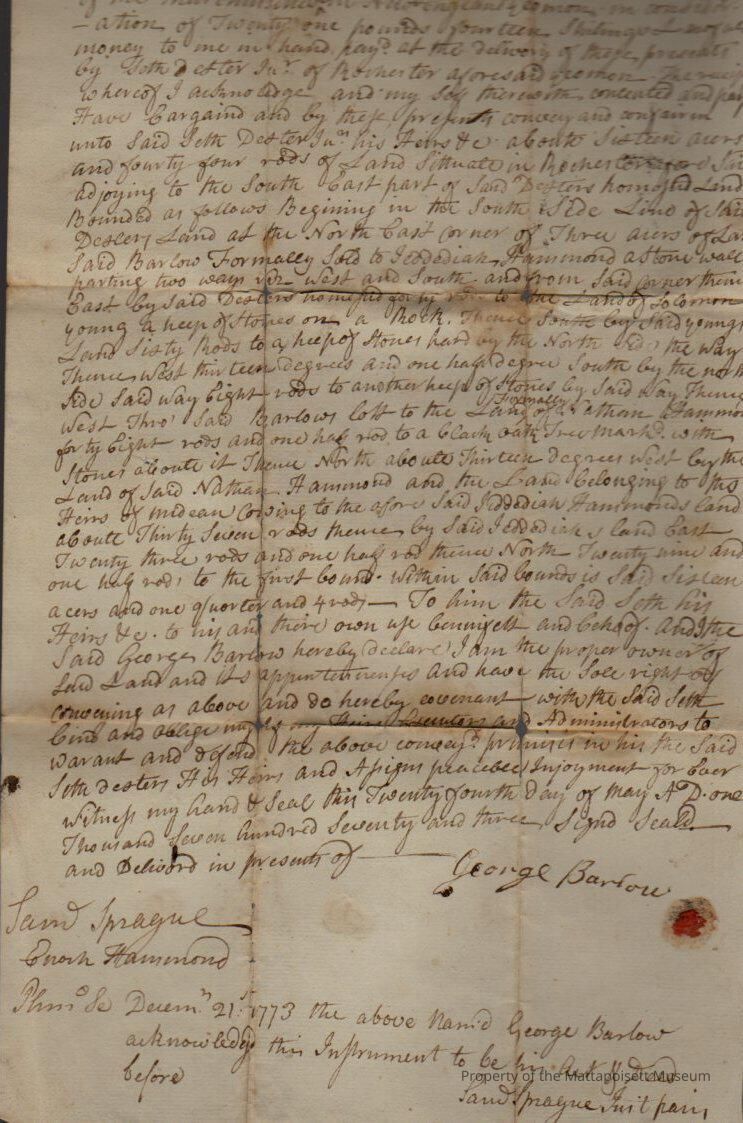 of the in New England yeoman in consider
-ation of Twenty one pounds fourteen Shilings Lawful
money to me in hand pay.d at the delivery of these presents
by Seth Dexter Jur. of Rochester aforesaid yeomen The recept
whereof I acknoledge and my self therewith contented and pay
Have Bargaind and by these presents convey and confairm
unto Said Seth Dexter Jun his Heirs &c about Sixteen acers
and fourty four rods of Land Situate in Rochester afore Said
adjoying to the South East part of Said Dexters homested Land
Bounded as follows Begining in the South Side Line of Said
Dexters Land at the North East corner of Three acers of Land
Said Barlow Formally Sold to Jeddediah Hammond a Stone wall
parting two ways viz West and South and from Said Corner thence
East by Said Dexters homested forty rods to the Land of Solomon
young a heep of Stones on a Rock. Thence South by Said youngs
Land Sixty Rods to a heep of Stones hard by the North Side the way
Thence West thirteen degrees and one half degree South by the north
Side Said way Eight rods to another heep of Stones by Said way Thence
West Thro' Said Barlows lott to the Land Formally of Nathan Hammond
forty Eight rods and one half rod to a black oak Tree markd. with
Stones aboute it Thence North aboute Thirteen degrees west by the
Land of Said Nathan Hammond and the Land belonging to the
Heirs of Coming to the afore Said Jeddediah Hammonds land
aboute Thirty Seven rods thence by Said Jeddediah,s land East
Twenty three rods and one half rod thence North Twenty nine and
one half rods to the first bound. Within Said bounds is Said Sixteen
acers and one quorter and 4 rods — To him the Said Seth his
Heirs &c. to his and there own use bennefett and behoof. And I the
Said George Barlow hereby declare I am the proper owner of
Said Land and its appurtenenses and have the Sole right of
convening as above and do hereby covenant with the Said Seth
bind and oblige my Self my Heirs Executors and Administrators to
warant and defend the above convay.d premises in his the Said
Seth dexters His Heirs and Asigns peacebel Injoyment for Ever
Witness my hand & Seal this Twenty fourth Day of May A D. one
Thousand Seven hundred Seventy and three Signd Seald.
and Deliverd in presents of —
George Barlow
Samll Sprague
Enoch Hammond
Plimo Ss Decemr 21st 1773 the above Nam'd George Barlow
acknowledg'd this Instrument to be his Act & Deed
before
Samll Sprague Just pacis
Property of the Mattapoisett Museum